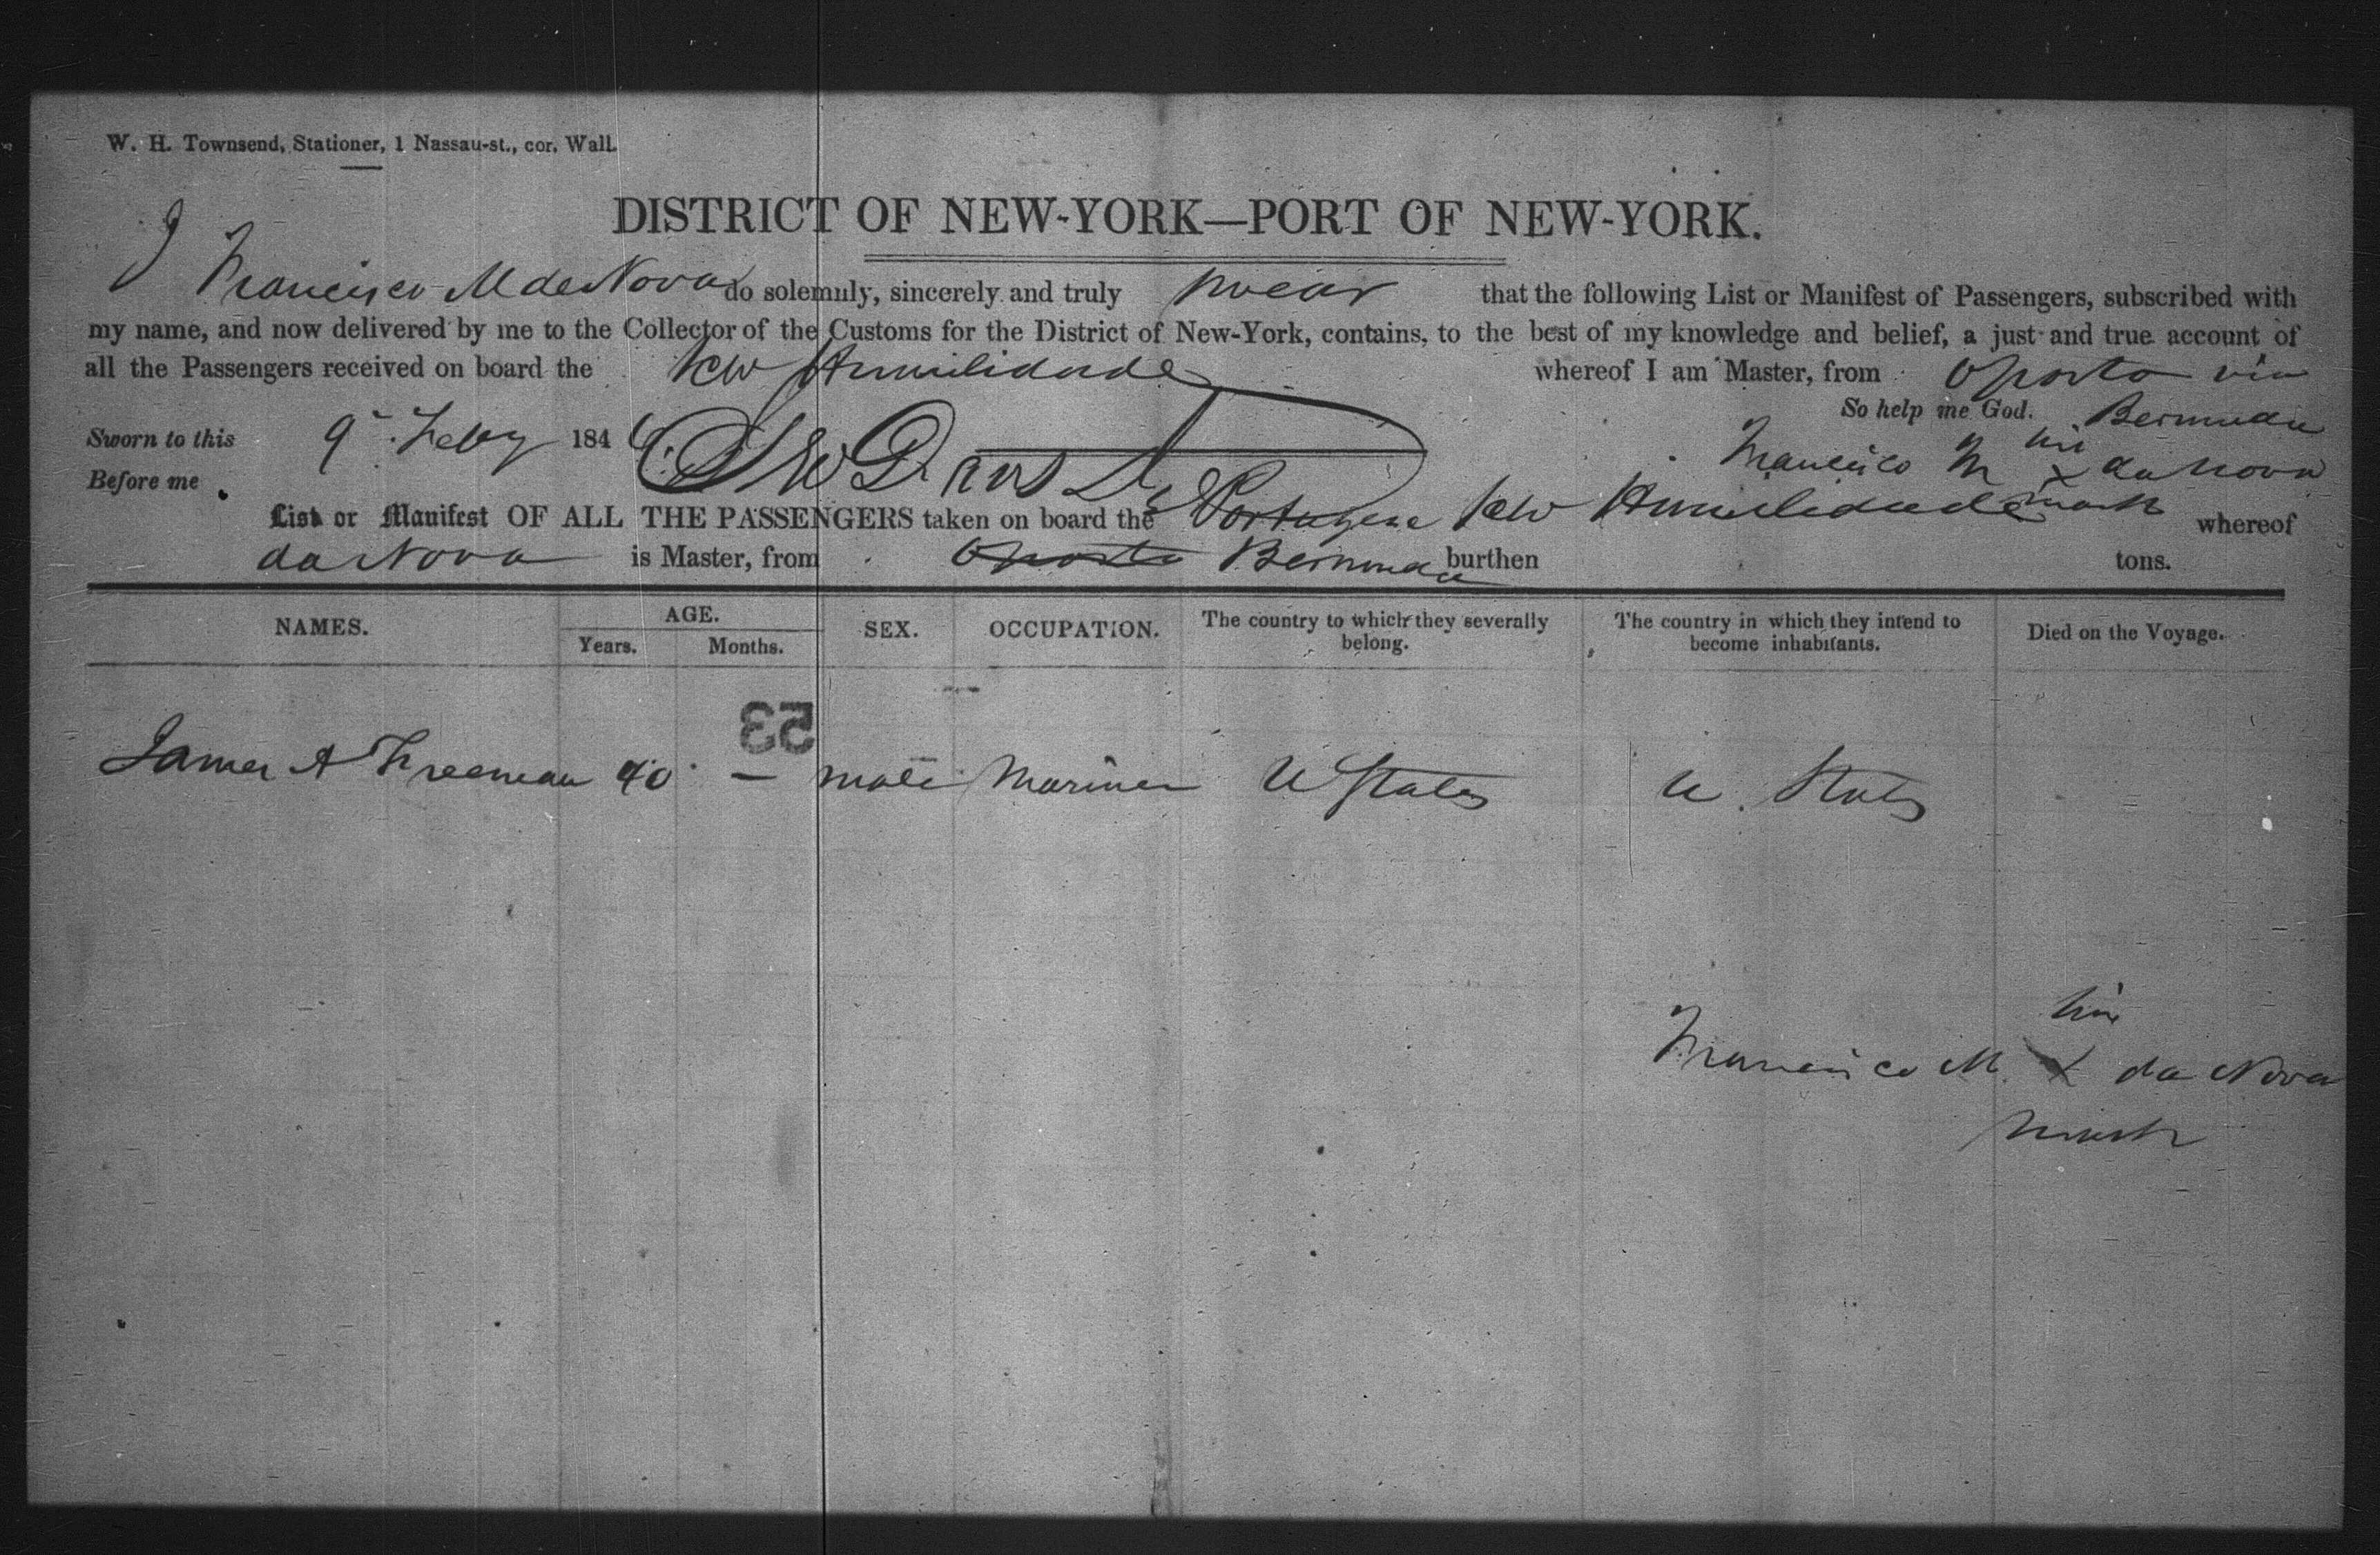 W. H. Townsend, Stationer, 1 Nassau-st., cor. Wall.
DISTRICT OF NEW-YORK—PORT OF NEW-YORK.
I Francisco M da Nova do solemnly, sincerely and truly swear that the following List or Manifest of Passengers, subscribed with
my name, and now delivered by me to the Collector of the Customs for the District of New-York, contains, to the best of my knowledge and belief, a just and true account of
all the Passengers received on board the Humilidade whereof I am Master, from Oporto via
So help me God. Bermuda
Sworn to this 9 Feby 1846
his
Francisco M x da Nova
Before me
mark
List or Manifest OF ALL THE PASSENGERS taken on board the Portugese Humilidade whereof
da Nova is Master, from Oporto Bermuda burthen tons.
NAMES. AGE. SEX. OCCUPATION. The country to which they severally belong. The country in which they intend to become inhabitants. Died on the Voyage.
Years. Months.
53
James A Freeman 40 — male Mariner U States U. States
his
Francisco M. x da Nova
mark